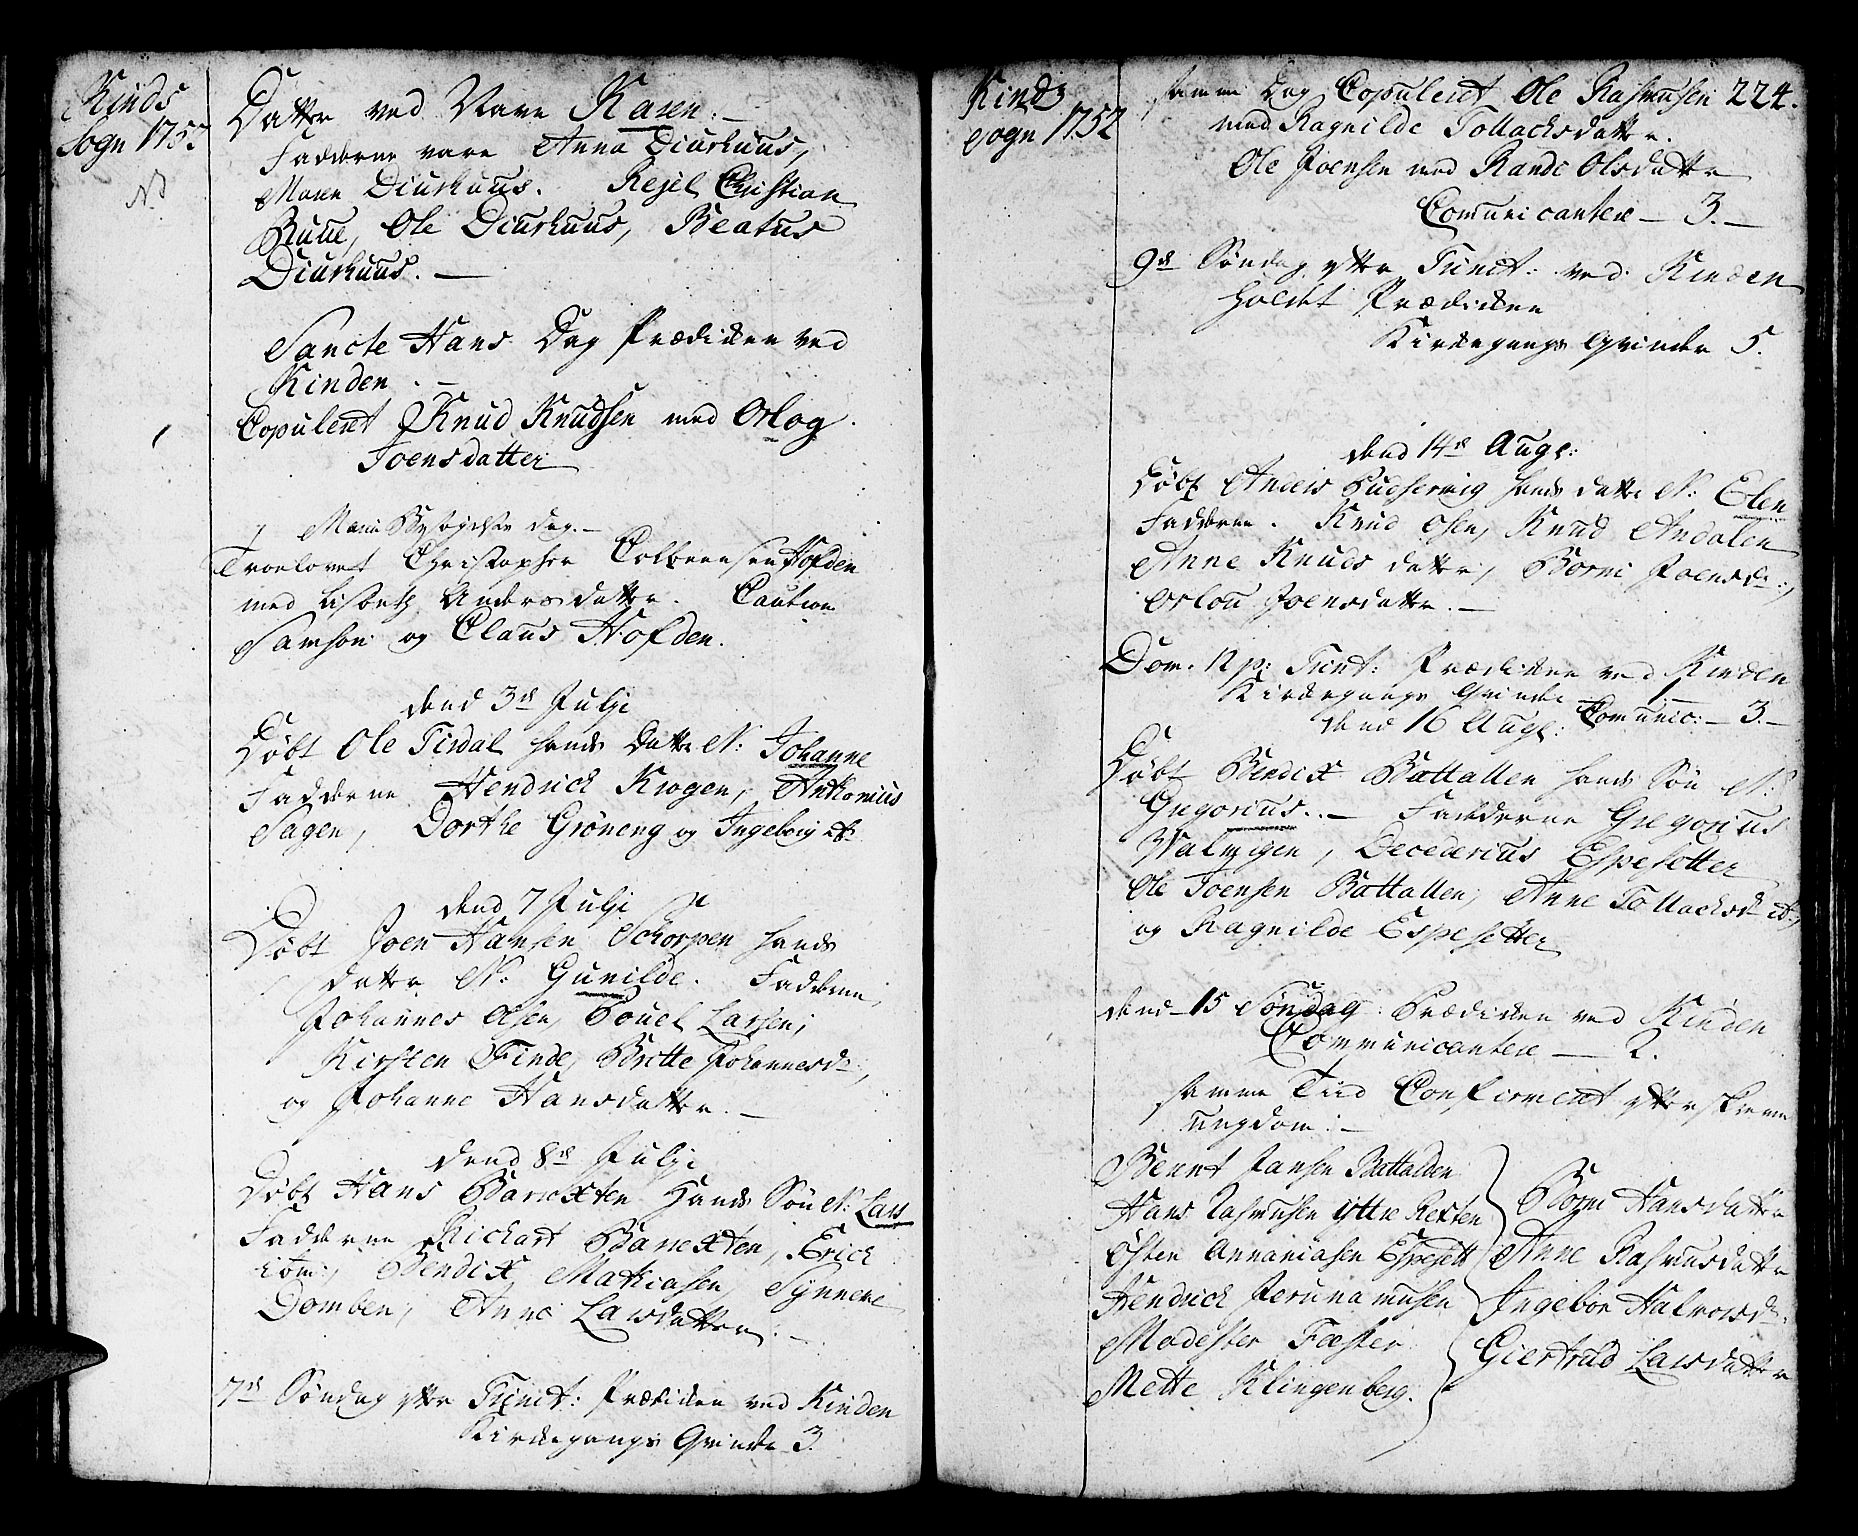 Kinds
Sogn 1752
Datter ved Navn Karen. —
Fadderne vare Anna Diurhuus,
Maren Diurhuus. Rejel Christian
Buue, Ole Diurhuus, Beatus
Diurhuus. —
Sancte Hans Dag Prædicken ved
Kinden. —
Copuleret Knud Knudsen med Orlog
Joensdatter
Mariæ Besøgelses Dag. —
Troelovet Christopher Hofden
med Lisbeth Andersdatter. Caution
Samson og Claus Hofden.
dend 3de Julji
Døbt Ole Tirdal hands Datter N: Johanne
Fadderne Hendrick Krogen, Anthonius
Sagen, Dorthe Grøneng og Ingeborg
dend 7 Julji
Døbt Joen Hansen Schorpen hands
datter N: Gunilde. Fadderne,
Johannes Olsen, Pouel Larsen,
Kirsten Finde, Britte Johannesd:,
og Johanne Hansdatter. —
dend 8de Julji
Døbt Hans Barexten Hands Søn N: Lars
Fadderne Richart Barexten, Erick
Bendix Mathiasen, Synneve
Domben, Anne Larsdatter. —
7de Søndag efter Trinit: Prædicken ved Kinden
Kirkegangs Qvinder 3.
Kinds
Sogn 1752
samme Dag Copuleret Ole Rasmusen 224.
med Ragnilde Tollachsdatter.
Ole Joensen med Rande Olsdatter
Comunicantere — 3. —
9de Søndag efter Trinit: ved Kinden
holdt Prædicken
Kirkegangs Qvinder 5.
dend 14de Aug:
Døbt Anders hands datter N: Elen
Fadderne. Knud Olsen, Knud Andalen
Anne Knudsdatter, Borni Joensd:,
Orlou Joensdatter. —
Dom. 12 p: Trinit: Prædicken ved Kinden
Kirkegangs Qvinde 1 —
dend 16 Aug: Comunic: — 3. —
Døbt Bendix Battallen hands Søn N:
Gregorius. — Fadderne Gregorius
Decederius Espesetter
Ole Joensen Battallen, Anne Tollachsd
og Ragnilde Espesetter
dend 15 Søndag: Prædicken ved Kinden
Communicantere — 2.
samme Tiid Confirmeret efterskrevne
ungdom: —
Bernt Jansen Battalden
Hans Rasmusen ytre Rexten
Østen Annaniasen Espesett
Hendrick Jeronamusen
Modester Fæster
Mette Klingenberg.
Borni Hansdatter
Anne Rasmusdatter
Ingebor Halvorsd:
Giertrud Larsdatter